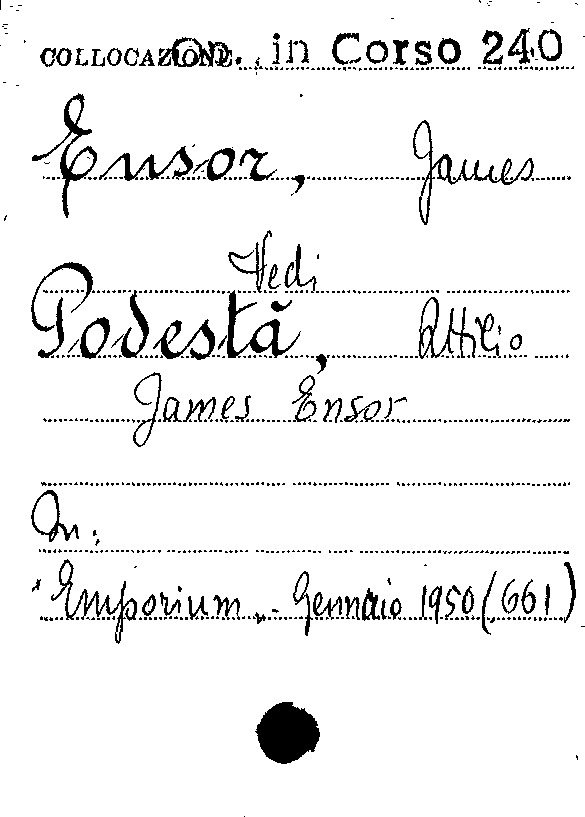 COLLOCAZIONE. Op. in Corso 240
Ensor, James
Vedi
Podestà, Attilio
James Ensor
In:
"Emporium" - Gennaio 1950 (661)